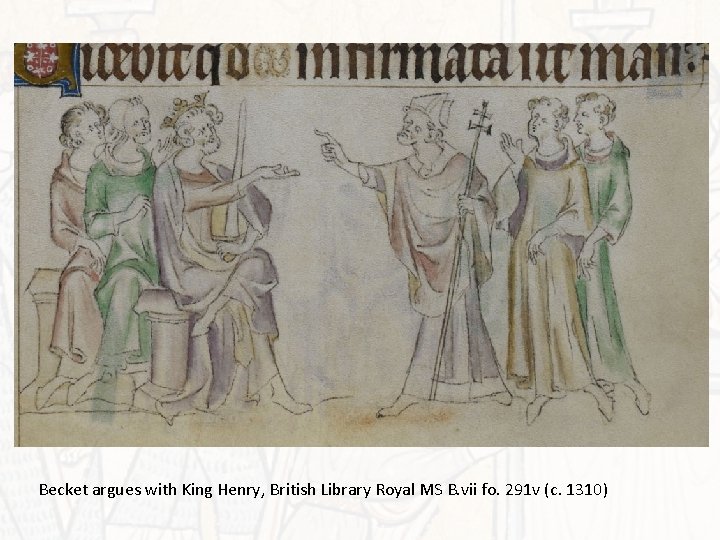 Uidebit qd infirmata sit man
Becket argues with King Henry, British Library Royal MS B.vii fo. 291v (c. 1310)